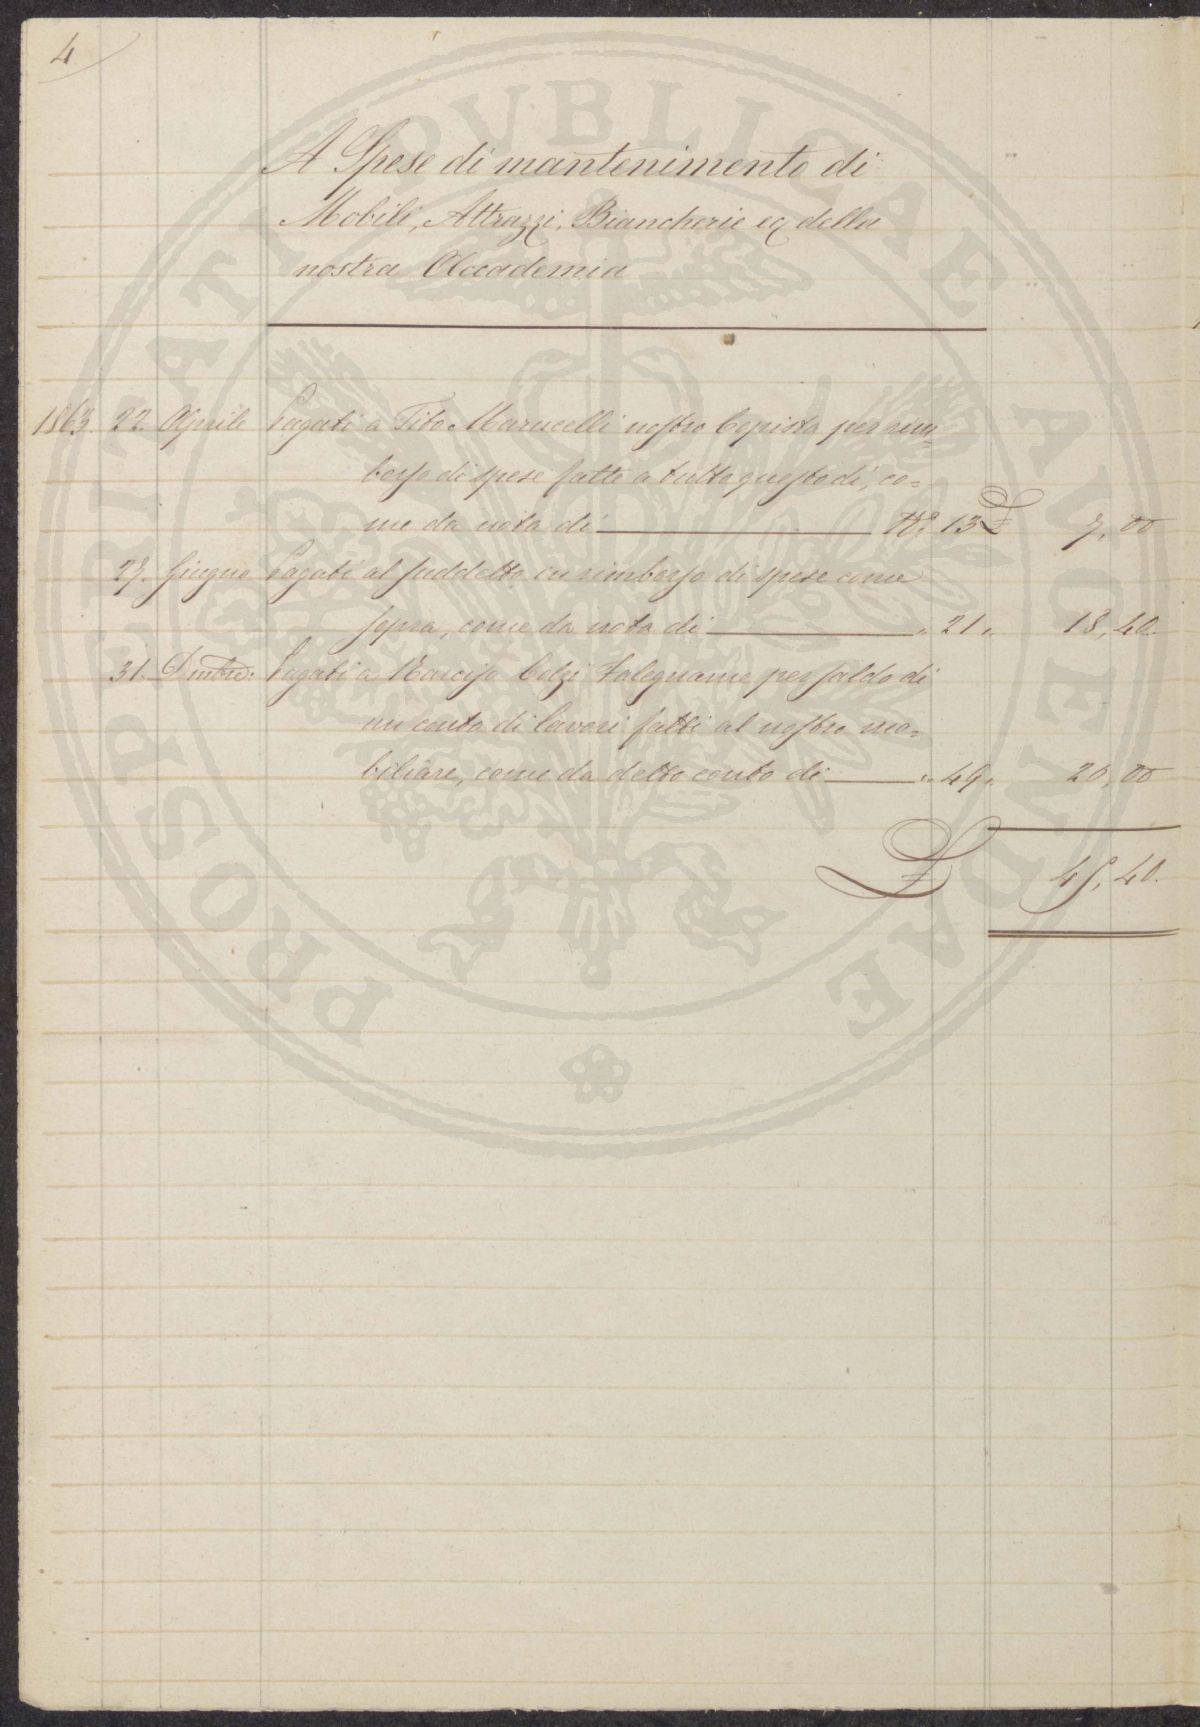 4
A Spese di mantenimento di
Mobili, Attrazzi, Biancherie ec della
nostra Accademia
1863. 22. Aprile Pagati a Tito Marucelli nostro Copista per rim=
borso di spese fatte a tutto questo dì, co=
me da nota di N.° 13 £ 7,00
27. Giugno Pagati al suddetto in rimborso di spese come
sopra, come da nota di " 21 " 18,40.
31. Dmbre: Pagati a Narciso Colzi Falegname per saldo di
un conto di lavori fatti al nostro mo=
biliare, come da detto conto di " 49 " 20,00
£ 45,40.
PROSPERITATI PVBLICAE AVGENDAE